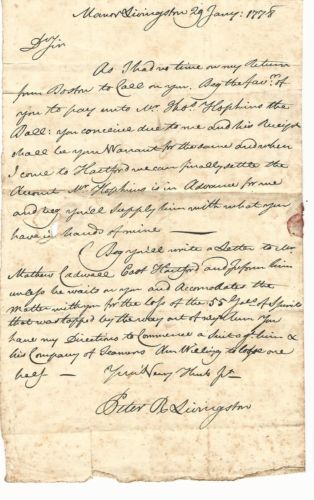 Manor Livingston 29 Jany: 1778
Dr Sir
As I had no time on my Return
from Boston to Call on you. Beg the favr. of
you to pay unto Mr. Thos. Hopkins the
Ball: you conceive due to me and his Receipt
shall be your Warrant for the same and when
I come to Hartford we can finally settle the
Account Mr. Hopkins is in Advance for me
and beg you'll supply him with what you
have in hands of mine
Beg you'll write a Letter to Mr.
Mathew Cadwell East Hartford and Inform him
unless he waits on you and Accomodates the
Matter with you for the loss of the 55 Gals. of Spirits
that was tapped by the way out of my Rum You
have my Directions to Commence a suit agt. him &
his Company of Teamers Am Willing to loose one
half Your Very Humb St.
Peter R Livingston